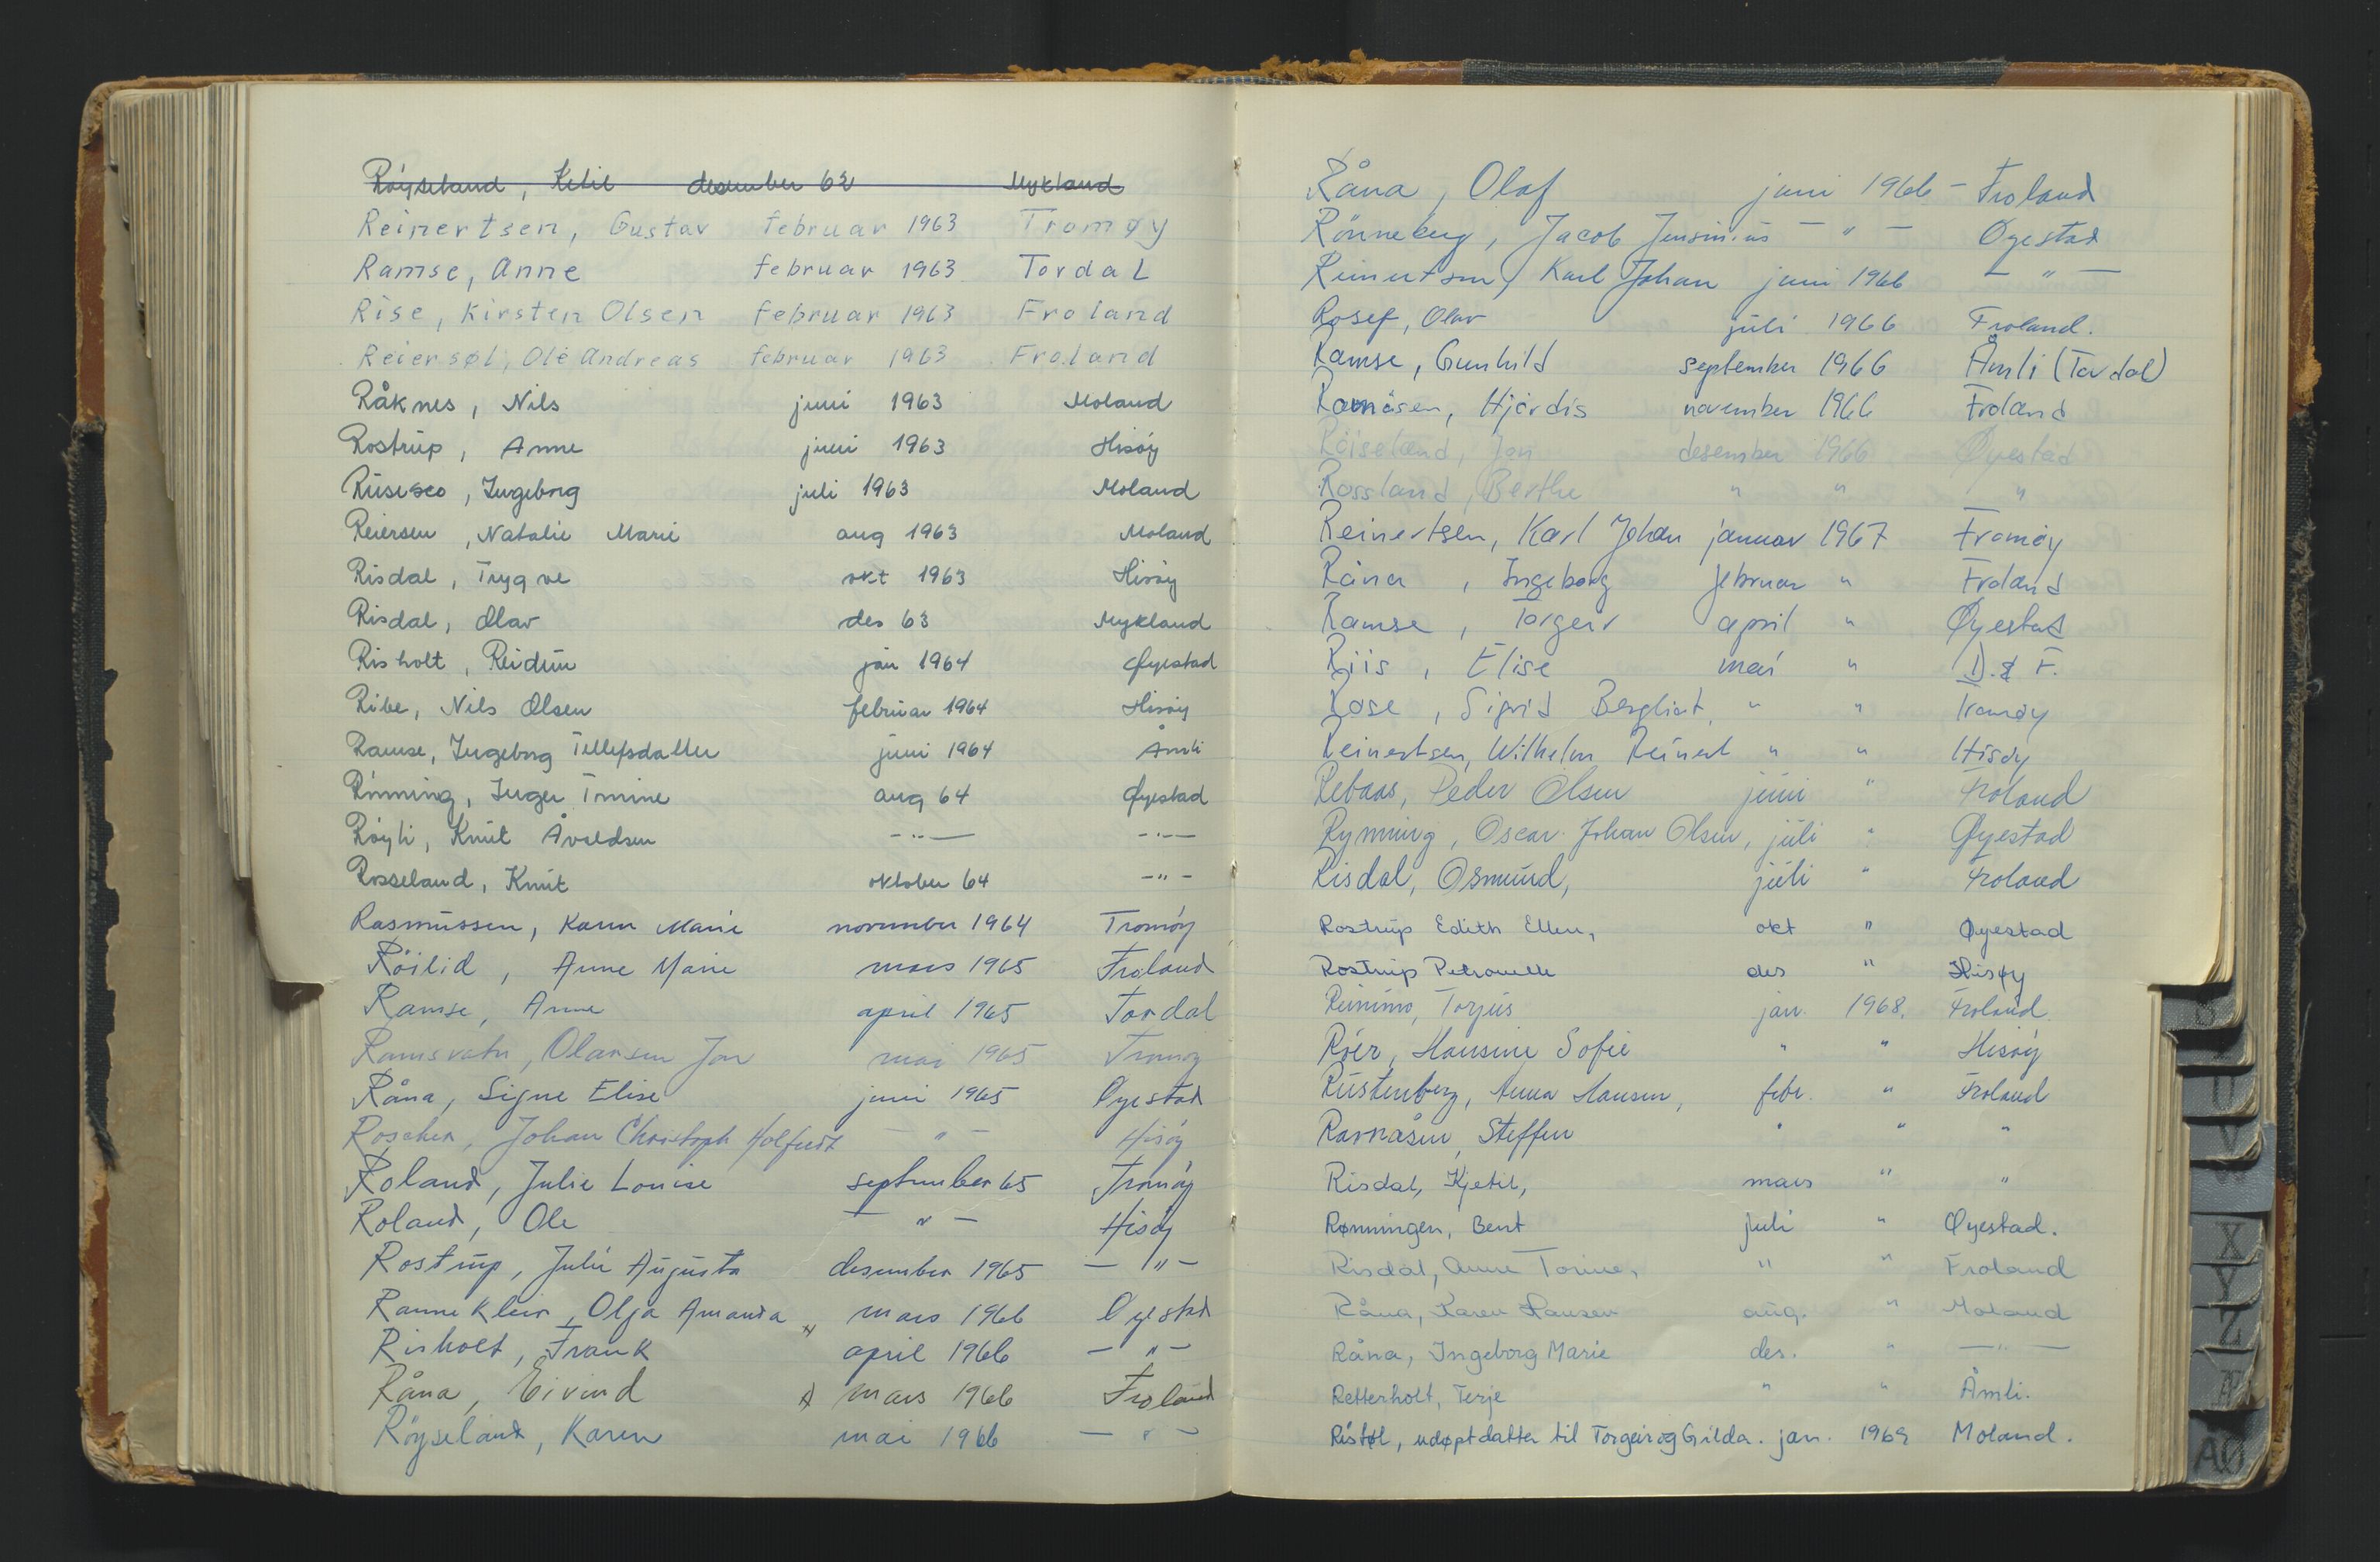 Röyseland, Ketil desember 62 Mykland
Reinertsen, Gustav februar 1963 Tromøy
Ramse, Anne februar 1963 Tordal
Rise, Kirsten Olsen februar 1963 Froland
Reiersøl, Ole Andreas februar 1963 Froland
Råknes, Nils juni 1963 Moland
Rostrup, Anne juni 1963 Hisöy
Ingeborg juli 1963 Moland
Reiersen, Natalie Marie aug 1963 Moland
Risdal, Trygve okt 1963 Hisöy
Risdal, Olav des 63 Mykland
Risholt, Reidun jan 1964 Øyestad
Ribe, Nils Olsen februar 1964 Hisöy
Ramse, Ingeborg Tellefsdatter juni 1964 Åmli
Rönning, Inger Tomine aug 64 Øyestad
Röyli, Knut Åvaldsen - " - - " -
Rosseland, Knut oktober 64 - " -
Rasmussen, Karen Marie november 1964 Tromöy
Röilid, Anne Marie mars 1965 Froland
Ramse, Anne april 1965 Tordal
Ramsvatn, Olavsen Jon mai 1965 Tromøy
Råna, Signe Elise juni 1965 Øyestad
Roscher, Johan Christoph Holfeldt - " - Hisöy
Roland, Julie Louise september 65 Tromöy
Roland, Ole - " - Hisöy
Rostrup, Julie Augusta desember 1965 - " -
Ranneklev, Olga Amanda x mars 1966 Øyestad
Risholt, Frank april 1966 - " -
Råna, Eivind x mars 1966 Froland
Röyseland, Karen mai 1966 - " -
Råna, Olaf juni 1966 - Froland
Rönneberg, Jacob Jensinius - " - Øyestad
Reinertsen, Karl Johan juni 1966 - " -
Rosef, Olav juli 1966 Froland.
Ramse, Gunhild september 1966 Åmli (Tovdal)
Ravnåsen, Hjördis november 1966 Froland
Röiseland, Jon desember 1966 Øyestad
Rossland, Berthe " " "
Reinertsen, Karl Johan januar 1967 Tromøy
Råna, Ingeborg februar " Froland
Ramse, Torgeir april " Øyestad
Riis, Elise mai " D. & F.
Rose, Sigrid Bergliot, " " Tromøy
Reinertsen, Wilhelm Reinert " " Hisöy
Rebaas, Peder Olsen juni " Froland
Rymning, Oscar Johan Olsen, juli " Øyestad
Risdal, Osmund, juli " Froland
Rostrup Edith Ellen, okt " Øyestad
Rostrup Petronelle des " Hisøy
Torjus jan. 1968. Froland.
Röer, Hansine Sofie " " Hisöy
Rustenberg, Anna Hansen, febr. " Froland
Ravnåsen, Steffen " " "
Risdal, Kjetil, mars " "
Rønningen, Bent juli " Øyestad.
Risdal, Anne Torine, " " Froland
Råna, Karen Hansen aug. " Moland
Råna, Ingeborg Marie des. " - " -
Retterholt, Terje " " Åmli.
Ristøl, udøpt datter til Torgeir og Gilda. jan. 1969 Moland.
U
V
W
X
Y
Z
Æ
AØ